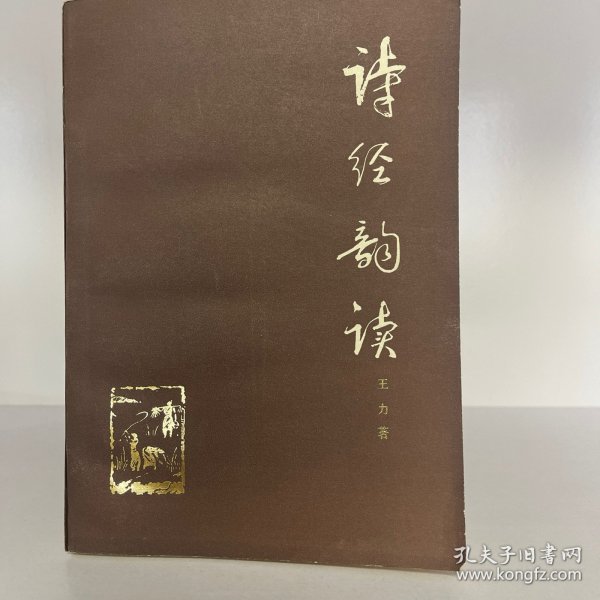 诗经韵读
王力著
孔夫子旧書网
www.kongfz.com